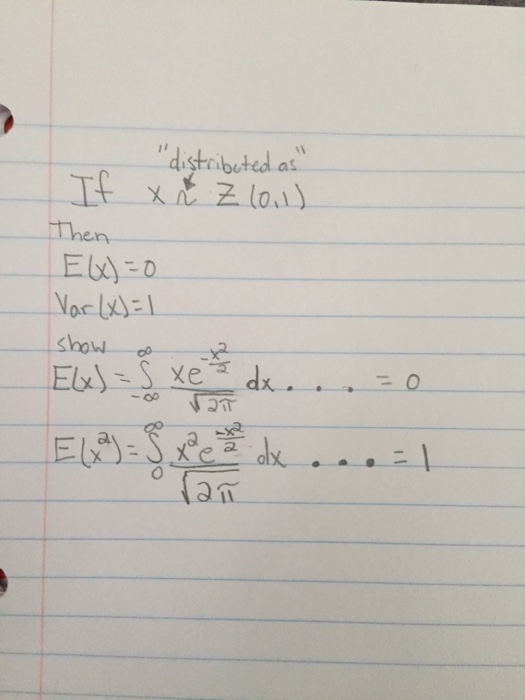 "distributed as"
If x ~ Z(0,1)
Then
E(x)=0
Var(x)=1
show
E(x) = ∫_{-∞}^{∞} xe^{-x²/2}/√2π dx . . . = 0
E(x²) = ∫_{0}^{∞} x²e^{-x²/2}/√2π dx . . . = 1